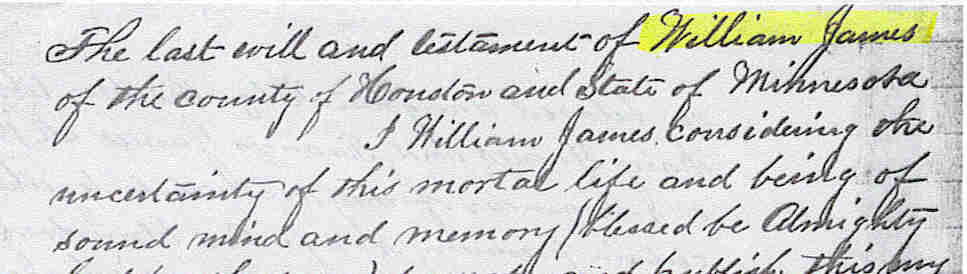 The last will and testament of William James
of the county of Houston and State of Minnesota
I William James considering the
uncertainty of this mortal life and being of
sound mind and memory (blessed be Almighty
and publish this my